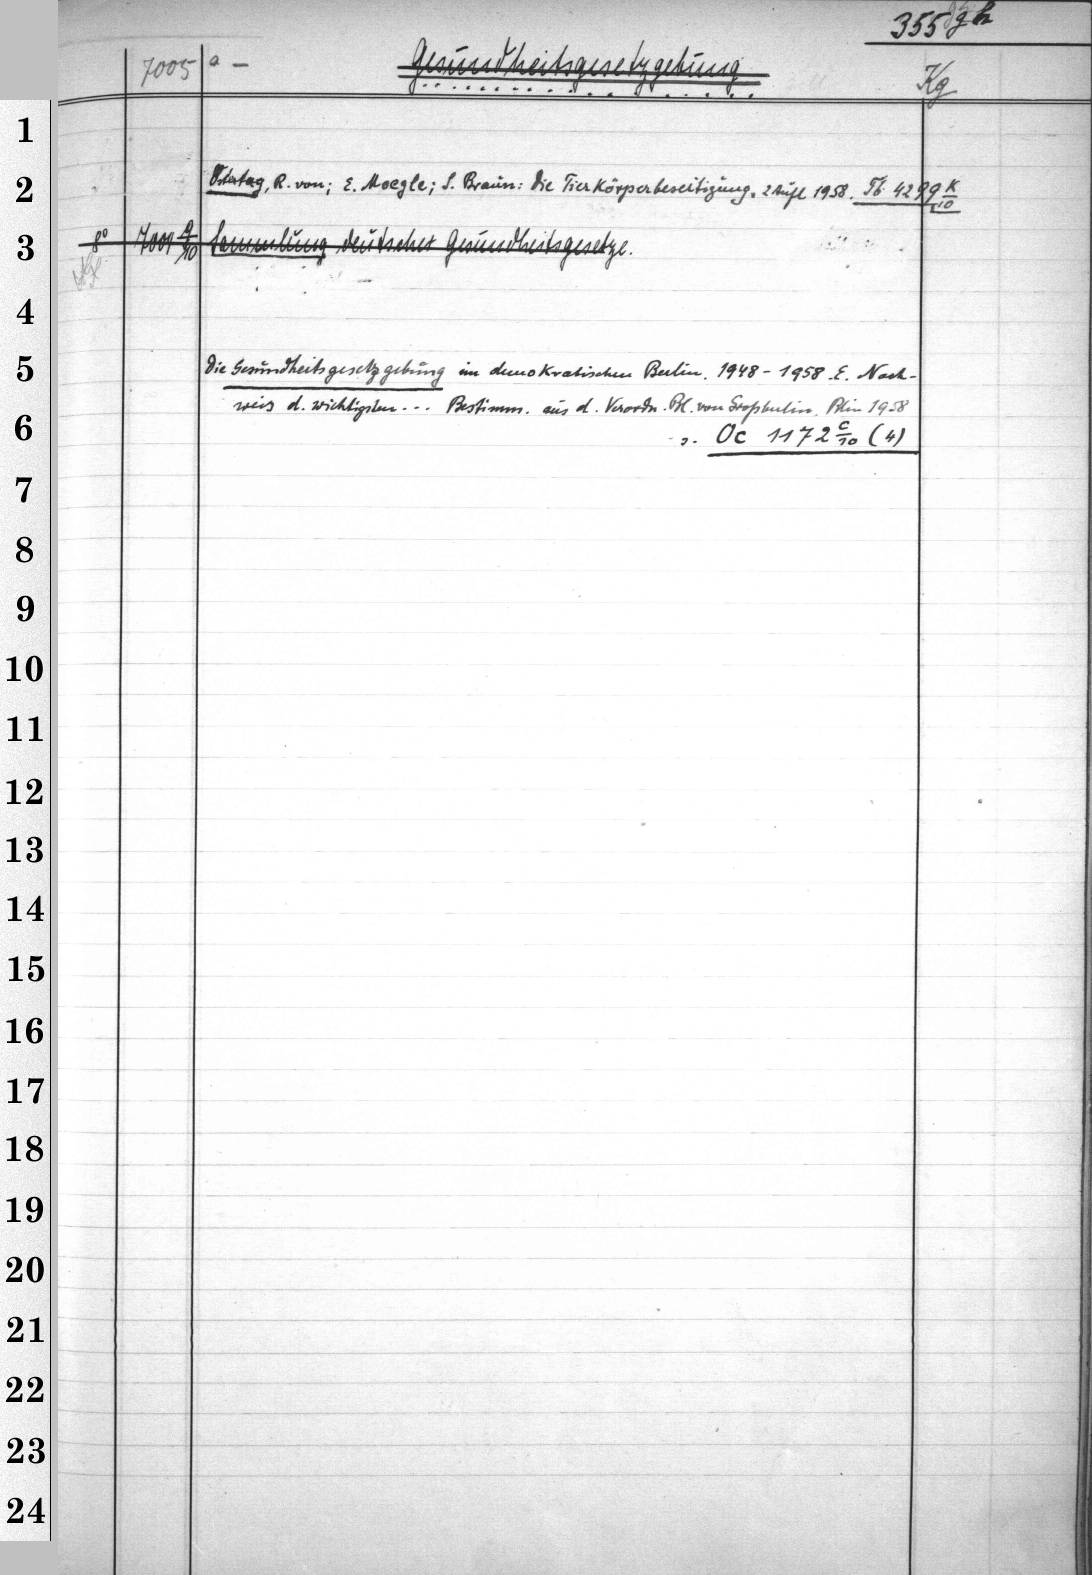 355 gh
7005 a – Gesundheitsgesetzgebung Kg
1
2 Ostertag, R. von; E. Moegle; S. Braun: Die Tierkörperbeseitigung. 2 Aufl 1958. Tb 4299 K/10
3 8° 7001 a/10 Sammlung deutscher Gesundheitsgesetze.
4
5 Die Gesundheitsgesetzgebung im demokratischen Berlin. 1948 - 1958. E. Nach-
weis d. wichtigsten ... Bestimm. aus d. Verordn. Bl. von Großberlin. Bln 1958
6 s. Oc 1172 c/10 (4)
7
8
9
10
11
12
13
14
15
16
17
18
19
20
21
22
23
24